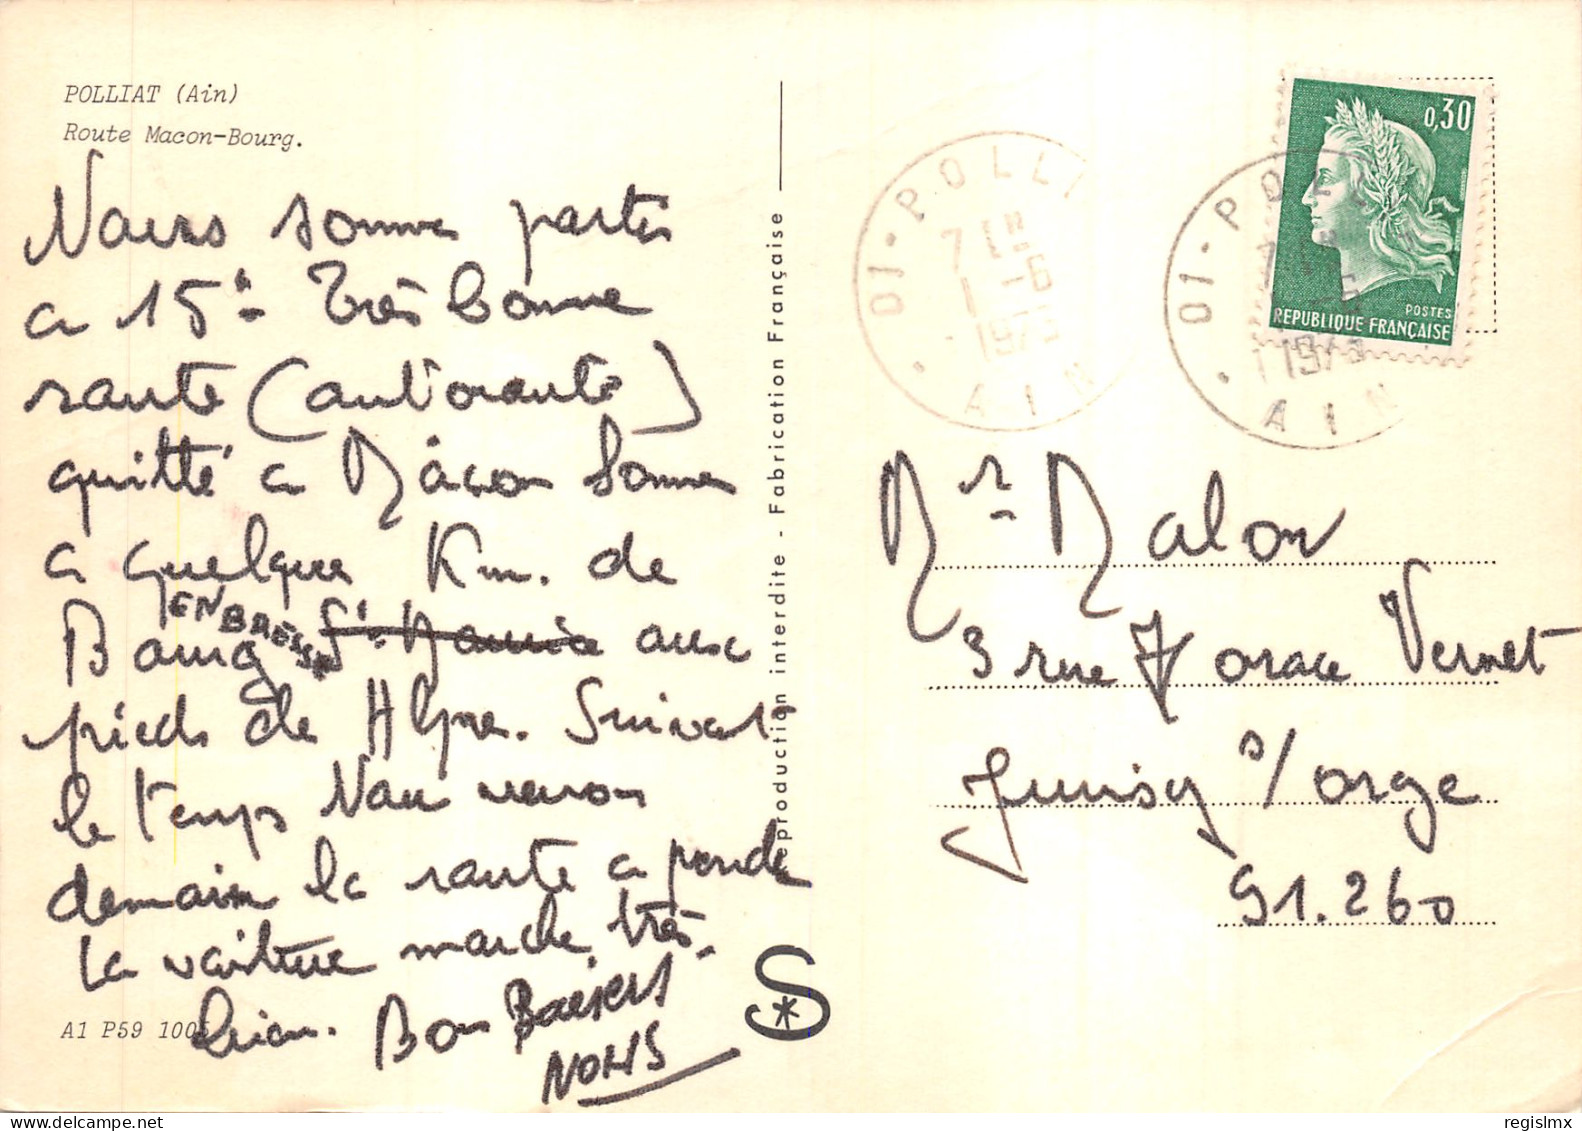 POLLIAT (Ain)
Route Macon-Bourg.
Nous sommes partis
a 15h Très bonne
route (autoroute)
quitté a Mâcon Sommes
a quelque Km. de
Bourg EN BRESSE St Maurice aux
pieds de Alpes. Suivat
le temps Nous verrons
demain la route a pende
la voiture marche très
bien. Bon Baisers
NOUS
A1 P59 100
Reproduction interdite - Fabrication Française
S
01 - POLLI
7 H
1 -6
1973
AIN
01 - POLL
1973
AIN
0,30
POSTES
REPUBLIQUE FRANÇAISE
Mr Malon
3 rue Horace Vernet
Juvisy s/orge
91.260
www.delcampe.net
regislmx